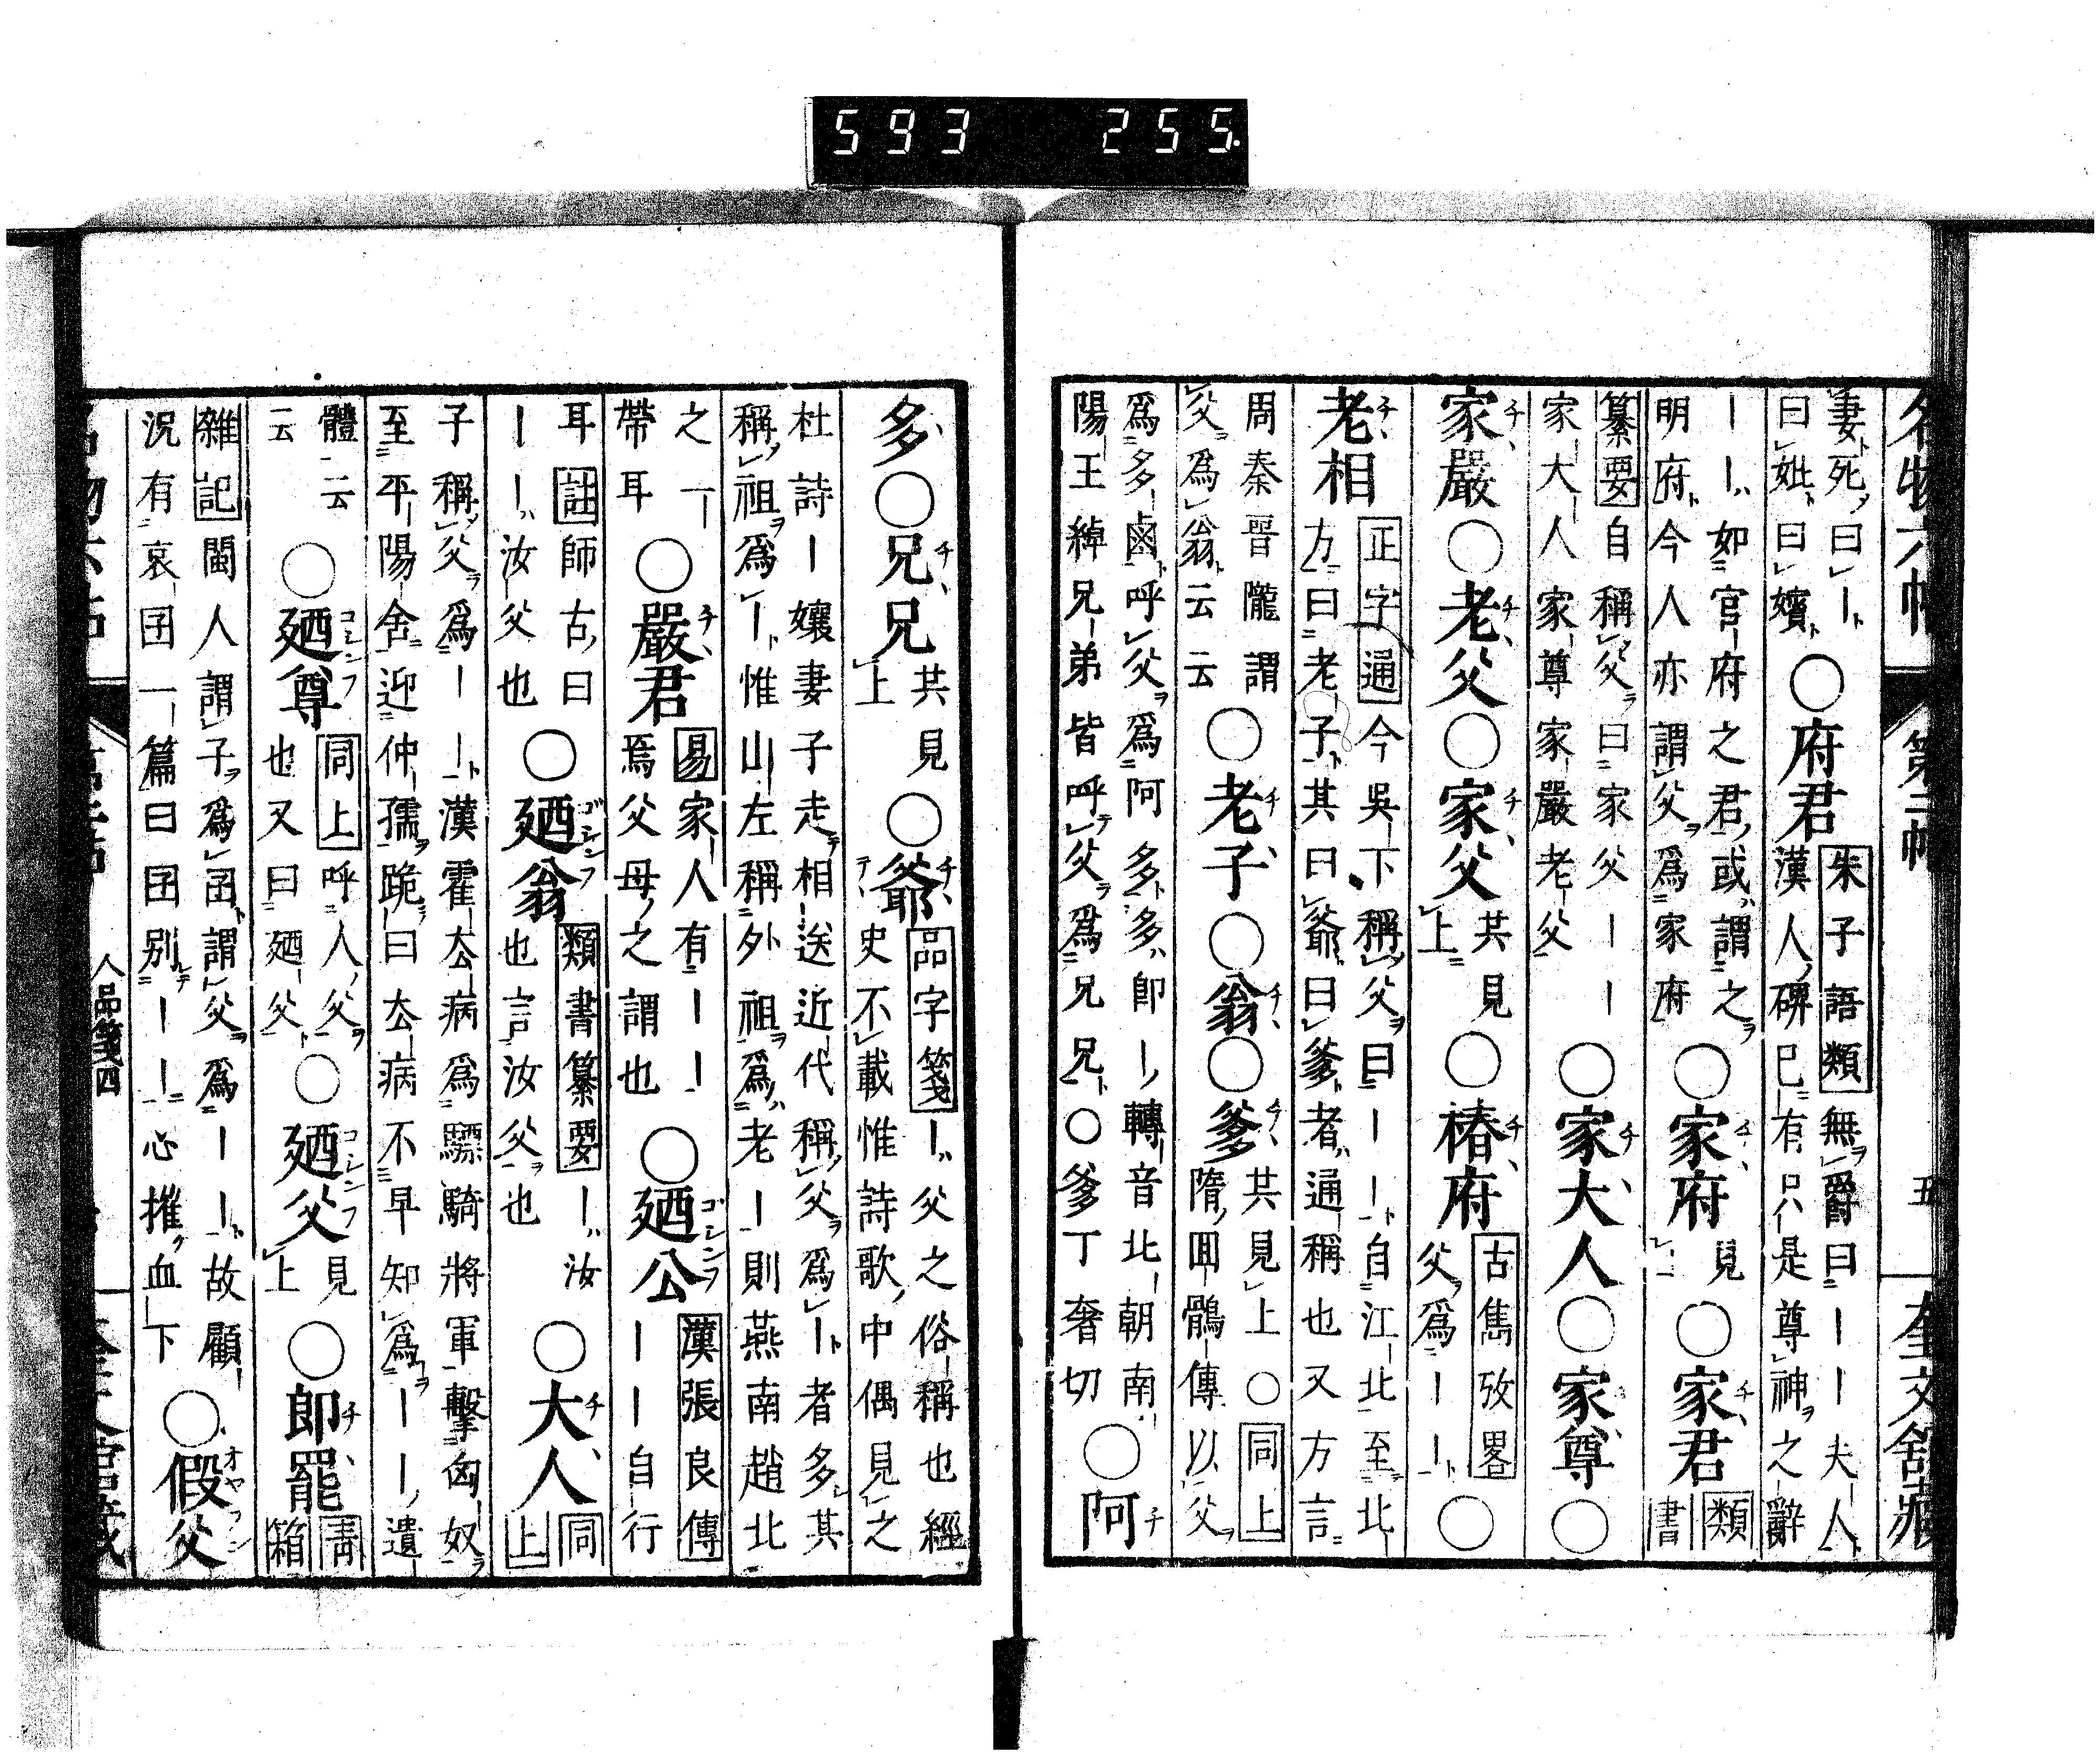 593 255
名物六帖 第二帖 五 奎文館藏
妻死曰｜
曰妣曰嬪
○府君
朱子語類無爵曰｜｜夫人
漢人碑已有只是尊神之辭
｜｜如官府之君或謂之
明府今人亦謂父爲家府
○家府
見上
○家君
類書
纂要自稱父曰家父｜｜
家大人家尊家嚴老父
○家大人○家尊○
家嚴○老父○家父
共見上
○椿府
古雋攷畧
父爲｜｜
○
老相
正字通今吳下稱父曰｜｜自江北至北
方曰老子其曰爺曰爹者通稱也又方言
周秦晉隴謂
父爲翁云云
○老子○翁○爹
共見上○同上
隋回鶻傳以父
爲多鹵呼父爲阿多多卽｜轉音北朝南
陽王綽兄弟皆呼父爲兄兄○爹丁奢切
○阿
多○兄兄
共見上
○爺
品字箋｜父之俗稱也經
史不載惟詩歌中偶見之
杜詩｜孃妻子走相送近代稱父爲｜者多其
稱祖爲｜惟山左稱外祖爲老｜則燕南趙北
之｜
帶耳
○嚴君
易家人有｜｜
焉父母之謂也
○廼公
漢張良傳
｜｜自行
耳註師古曰
｜｜汝父也
○廼翁
類書纂要｜汝
也言汝父也
○大人
同上
子稱父爲｜｜漢霍去病爲驃騎將軍擊匈奴
至平陽舍迎仲孺跪曰去病不早知爲｜｜遺
體云
云
○廼尊
同上呼人父
也又曰廼父
○廼父
見上
○郎罷
靑箱
雜記閩人謂子爲囝謂父爲｜｜故顧
況有哀囝一篇曰囝別｜｜心摧血下
○假父
人品箋四